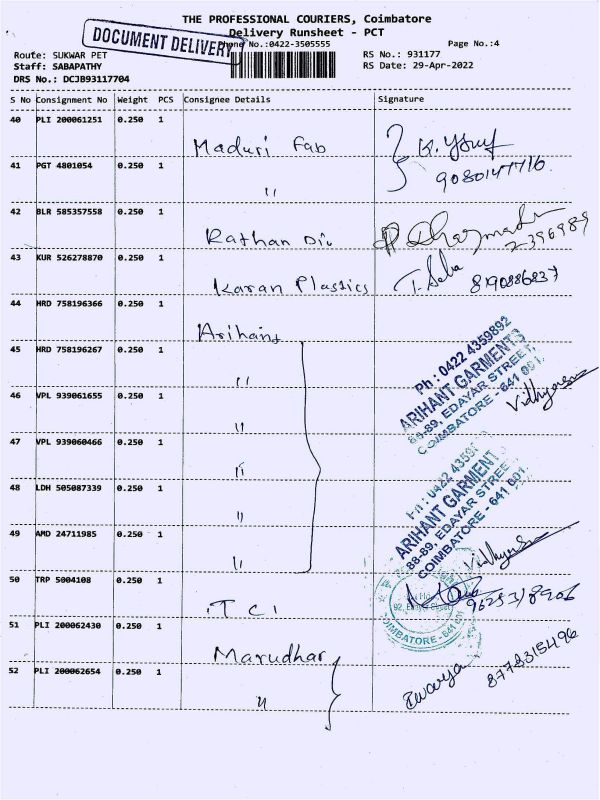 THE PROFESSIONAL COURIERS, Coimbatore
Delivery Runsheet - PCT
DOCUMENT DELIVERY
Phone No.:0422-3505555
Page No.:4
Route: SUKWAR PET
RS No.: 931177
Staff: SABAPATHY
RS Date: 29-Apr-2022
DRS No.: DCJB93117704
S No Consignment No Weight PCS Consignee Details Signature
40 PLI 200061251 0.250 1 Maduri Fab
41 PGT 4801054 0.250 1 "
9080147716
42 BLR 585357558 0.250 1 Rathan
2396989
43 KUR 526278870 0.250 1 Karan Plastics T. Saba 8190886837
44 HRD 758196366 0.250 1 Arihant
45 HRD 758196267 0.250 1 "
Ph : 0422 4359892
ARIHANT GARMENTS
88-89, EDAYAR STREET,
COIMBATORE - 641 001.
46 VPL 939061655 0.250 1 "
47 VPL 939060466 0.250 1 "
48 LDH 505087339 0.250 1 "
ARIHANT GARMENTS
88-89, EDAYAR STREET
COIMBATORE - 641 001.
49 AMD 24711985 0.250 1 "
50 TRP 5004108 0.250 1 TCI
COIMBATORE - 641 001
51 PLI 200062430 0.250 1 Marudhar
52 PLI 200062654 0.250 1 "
8778315496